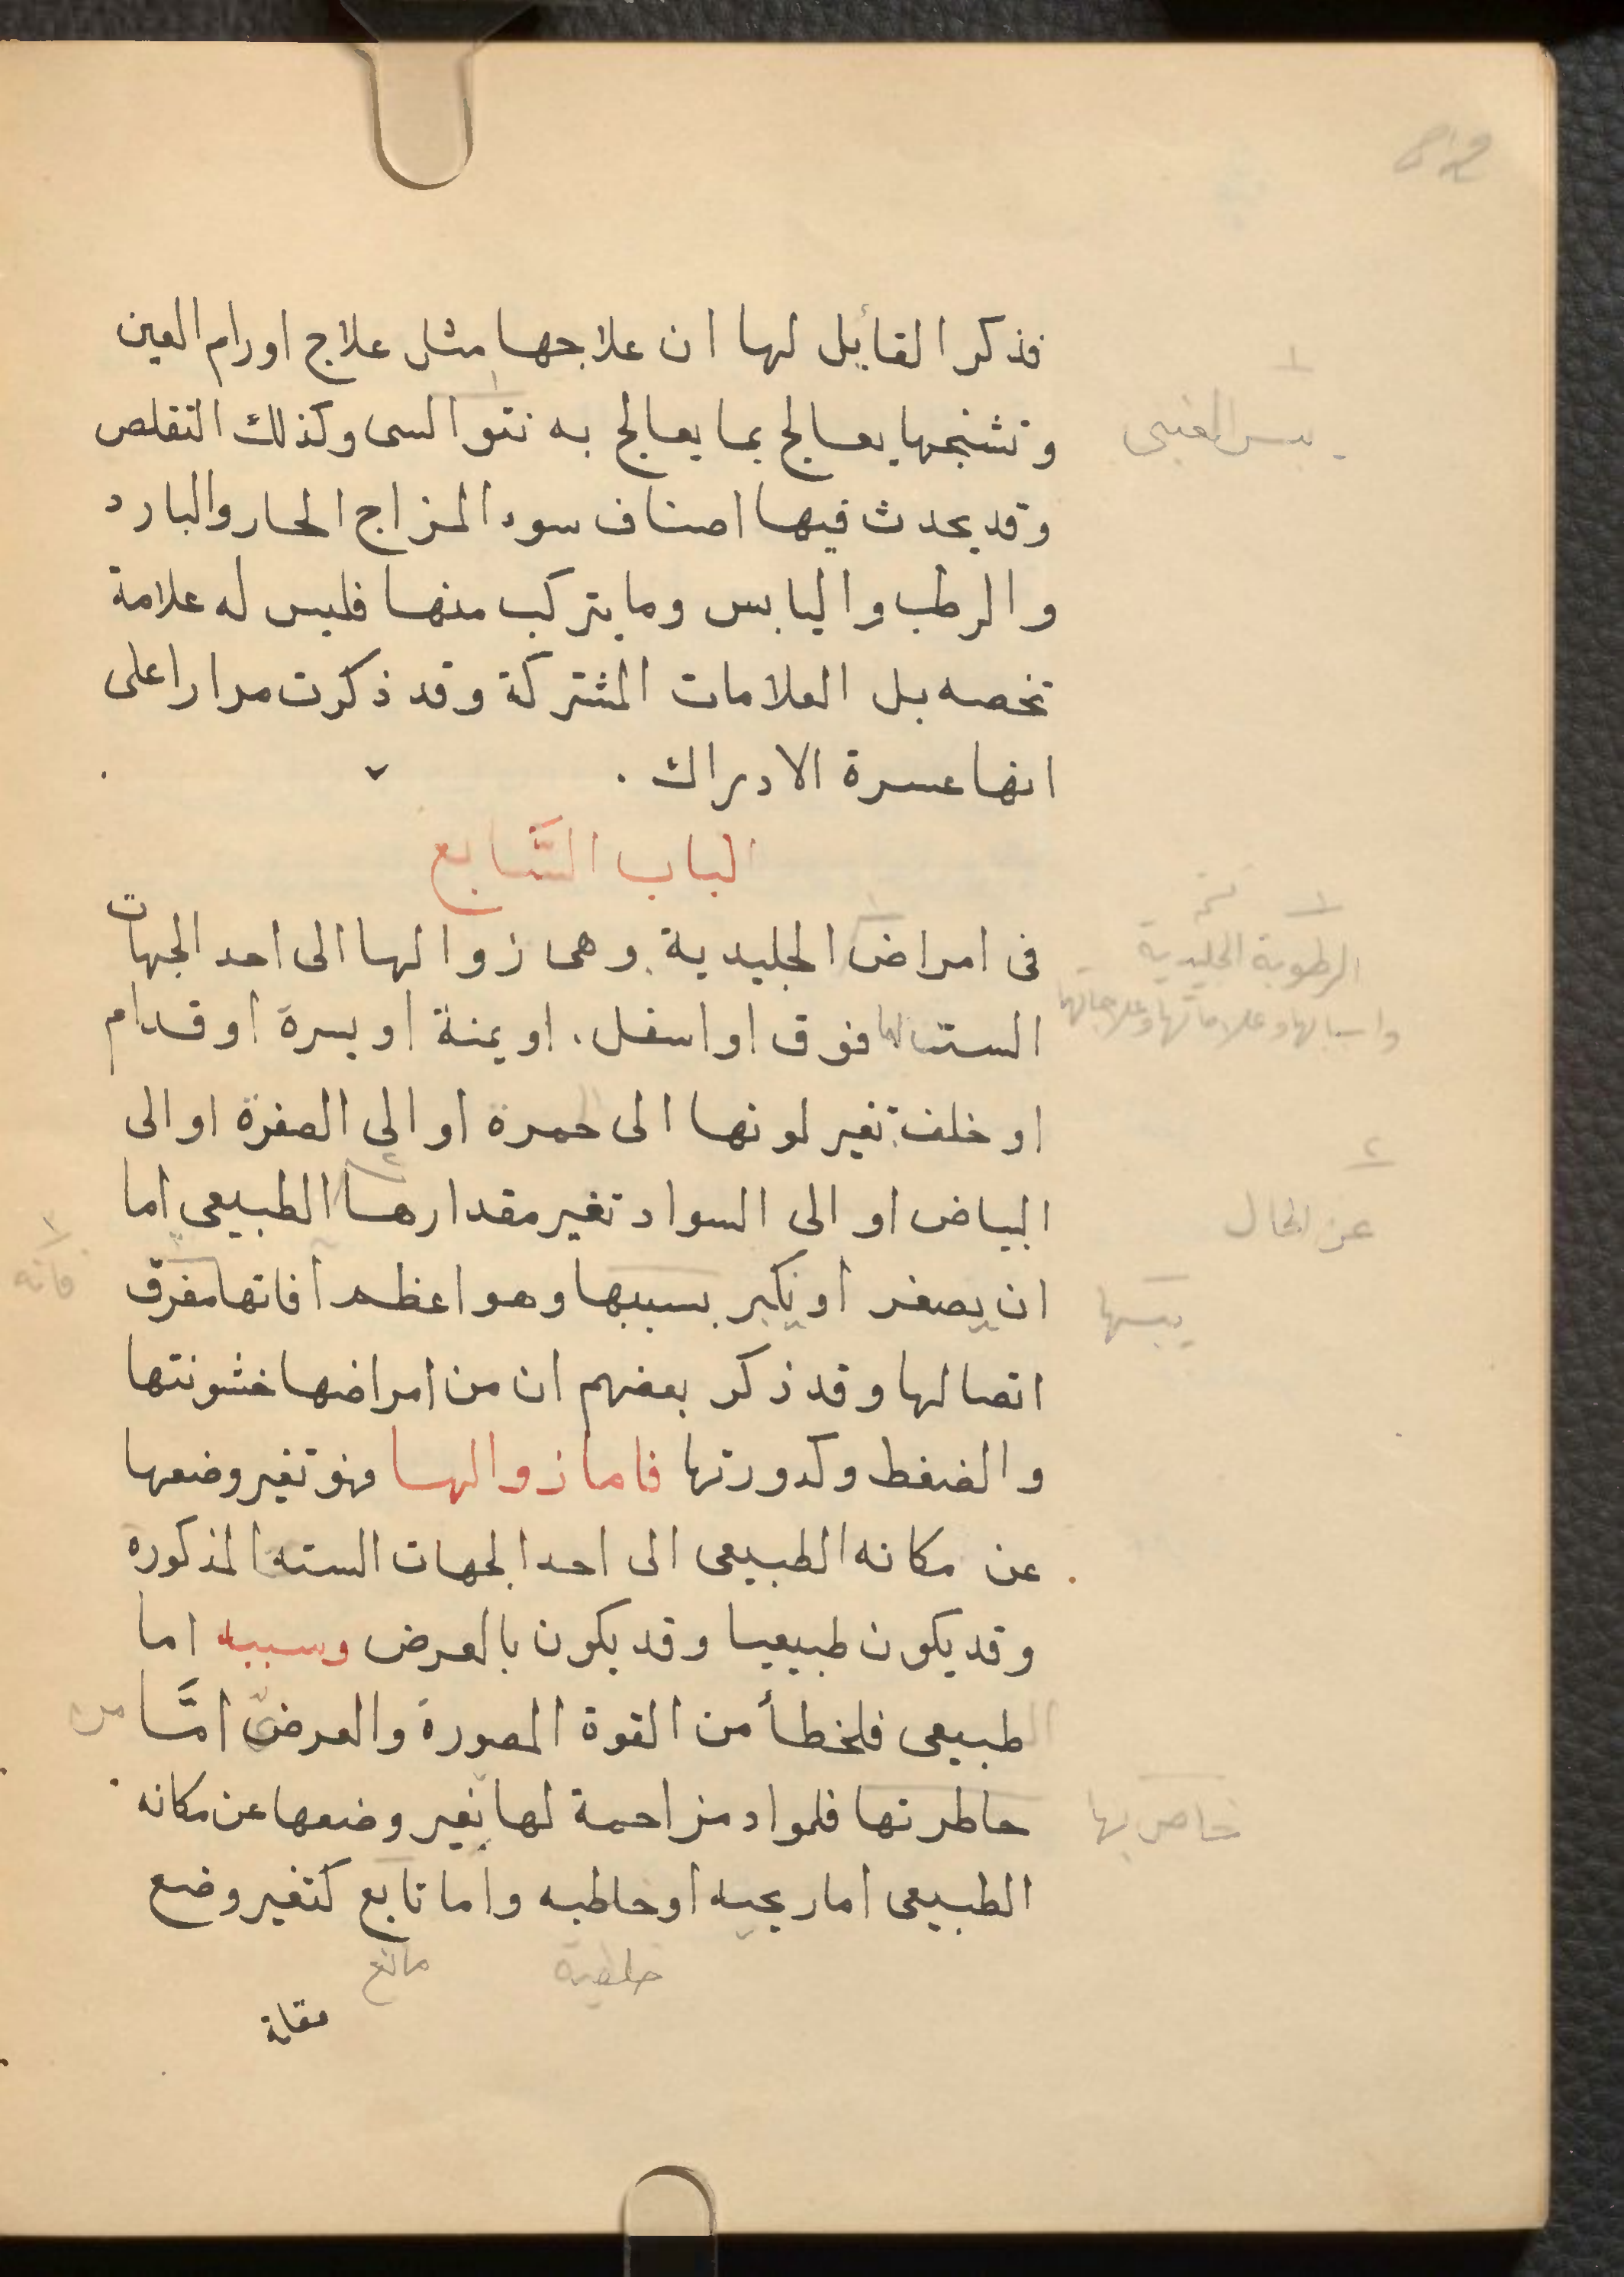 فذكر القائل لها ان علاجها مثل علاج اورام العين
وتشنجها يعالج بما يعالج به نتو السى وكذلك التقلص
وقد يحدث فيها اصناف سوء المزاج الحار والبارد
والرطب واليابس وما يتركب منها فليس له علامة
تخصه بل العلامات المشتركة وقد ذكرت مرارا على
انها عسرة الادراك .
الباب السَّابع
فى امراض الجليدية وهى زوالها الى احد الجهات
الست فوق او اسفل . او يمنة او يسرة او قدام
او خلف تغير لونها الى حمرة او الى الصفرة او الى
البياض او الى السواد تغير مقدارها الطبيعى اما
ان يصغر او يكبر بسببها وهو اعظم آفاتها مفرق
اتصالها وقد ذكر بعضهم ان من امراضها خشونتها
والضغط وكدورتها فاما زوالها فهو تغير وضعها
عن مكانه الطبيعى الى احد الجهات السته المذكوره
وقد يكون طبيعيا وقد يكون بالعرض وسببه اما
الطبيعى فلخطأ من القوة المصورة والعرضىّ امَّا من
حاطرتها فلمواد مزاحمة لها تغير وضعها عن مكانه
الطبيعى اما ريحيه او حاطبه واما تابع كتغير وضع
خلطية
مانع
مقلة
يبس
الرطوبة الجليدية
واسبابها وعلاماتها وعلاجاتها
عن الحال
يبسها
فانه